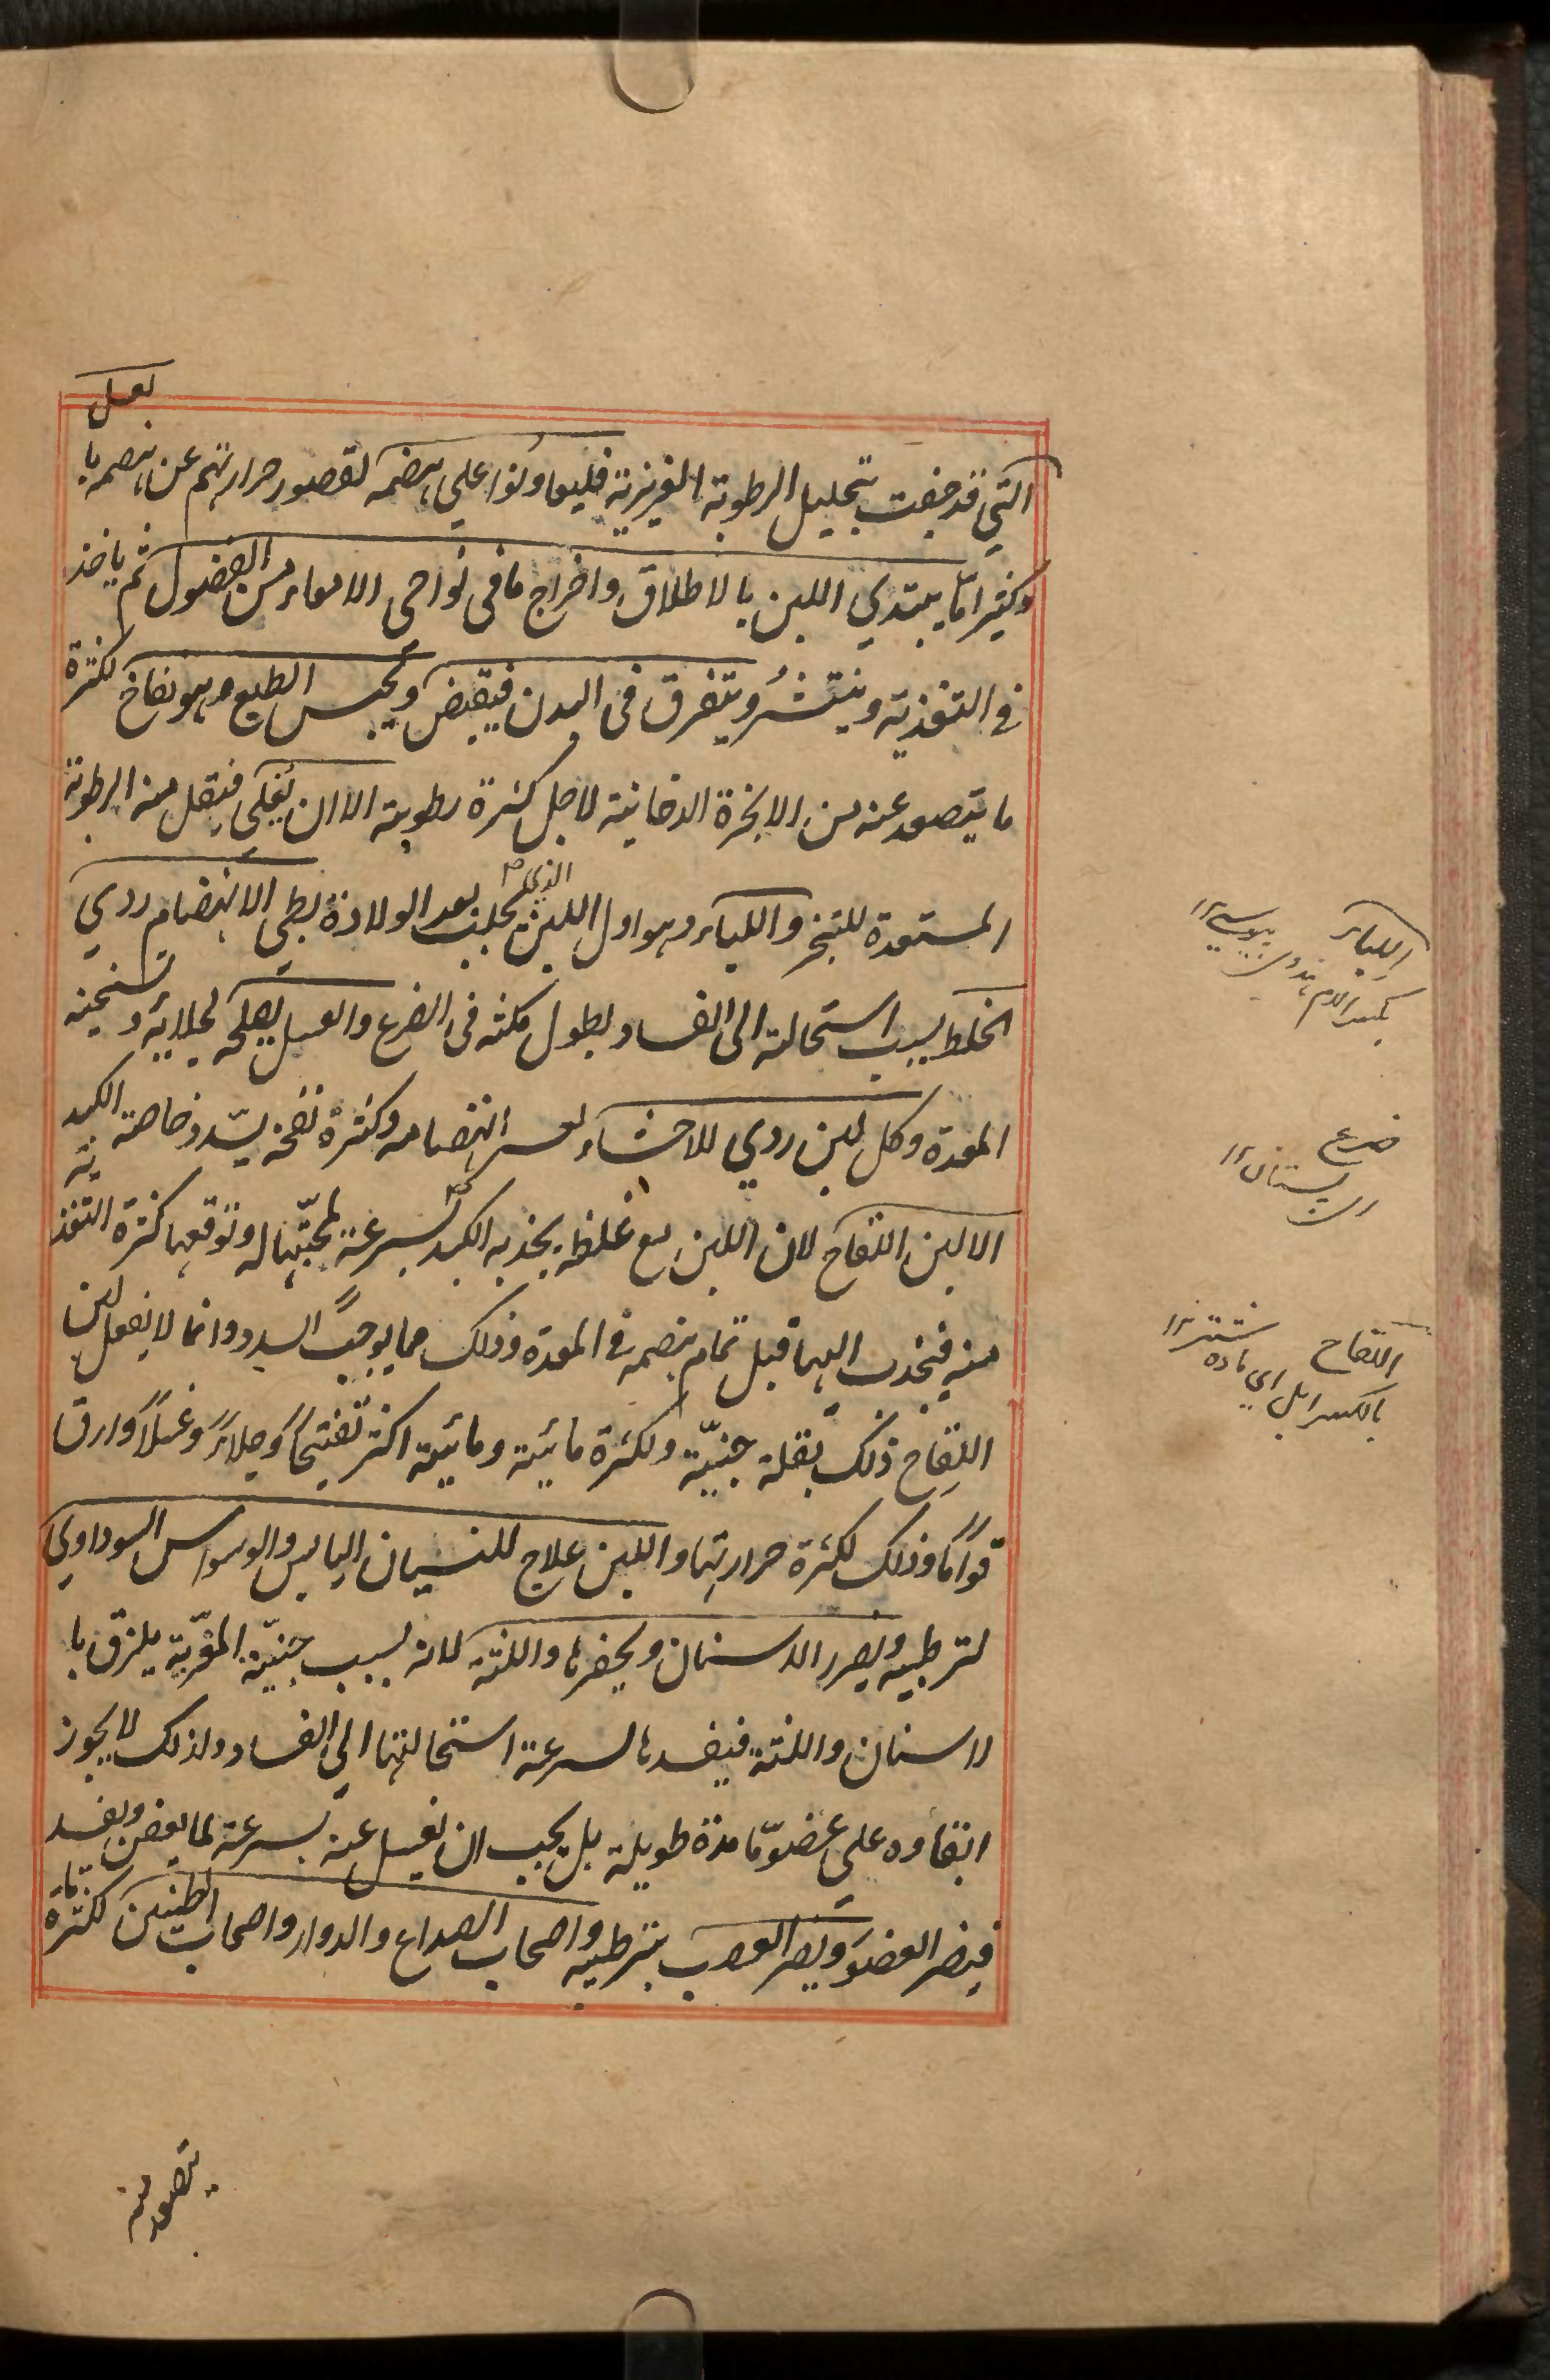 التي قد جفت بتحليل الرطوبة الغريزية فليعاونوا علي هضمه لقصور حرارتهم عن هضمه با
لعسل
وكثيرا ما يبتدي اللبن بالاطلاق واخراج ما في نواحي الامعاء من الفضول ثم ياخذ
في التغذية وينتشر ويتفرق في البدن فيقبض ويحبس الطبع وهو نفاخ لكثرة
ما يتصعد عنه من الابخرة الدخانية لاجل كثرة رطوبته الا ان يغلى فيقل منه الرطوبة
المستعدة للتبخر واللباء وهو اول اللبن الذي يحلب بعد الولادة بطي الانهضام ردي
الخلط بسبب استحالته الى الفساد بطول مكثه في الضرع والعسل يصلحه لجلائه وتسخينه
المعدة وكل لبن ردي للاحشاء لعسر انهضامه وكثرة نفخه يسدد خاصة الكبد
الا لبن اللقاح لان اللبن مع غلظه يجذبه الكبد بسرعة لمحبتها له وتوقعها كثرة التغذية
منه فيجذب اليها قبل تمام هضمه في المعدة وذلك مما يوجب السدد وانما لا يفعل لبن
اللقاح ذلك لقلة جبنيّة ولكثرة مائية ومائيته اكثر تفتيحا وجلاء وغسلا وارق
قواما وذلك لكثرة حرارتها واللبن علاج للنسيان اليابس والوسواس السوداوي
لترطيبه ويضر الاسنان ويحفرها واللثة لانه بسبب جبنيّة المغرّية يلزق با
لاسنان واللثة فيفسدها لسرعة استحالتها الي الفساد ولذلك لا يجوز
ابقاوه على عضو ما مدة طويلة بل يجب ان يغسل عنه بسرعة لما يعفن ويفسد
فيضر العضو ويضر العصب بترطيبه واصحاب الصداع والدوار واصحاب الطنين لكثرة ما
يتصعد منه
اللباء
بكسر اللام
ضرع
پستان ١٢
اللقاح
شتر ١٢
بالكسر ابل اي ماده